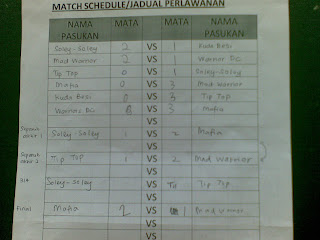 MATCH SCHEDULE/JADUAL PERLAWANAN
NAMA PASUKAN MATA VS MATA NAMA PASUKAN
Soley-Soley 2 VS 1 Kuda Besi
Mad Warrior 2 VS 1 Warrior DC
Tip Top 0 VS 1 Soley-Soley
Mafia 0 VS 3 Mad Warrior
Kuda Besi 0 VS 3 Tip Top
Warrior DC VS 3 Mafia
VS
Separuh akhir 1 Soley-Soley 1 VS 2 Mafia
VS
Separuh akhir 2 Tip Top 1 VS 2 Mad Warrior
VS
3/4 Soley-Soley VS Tip Top
VS
Final Mafia 2 VS 1 Mad Warrior
VS
VS